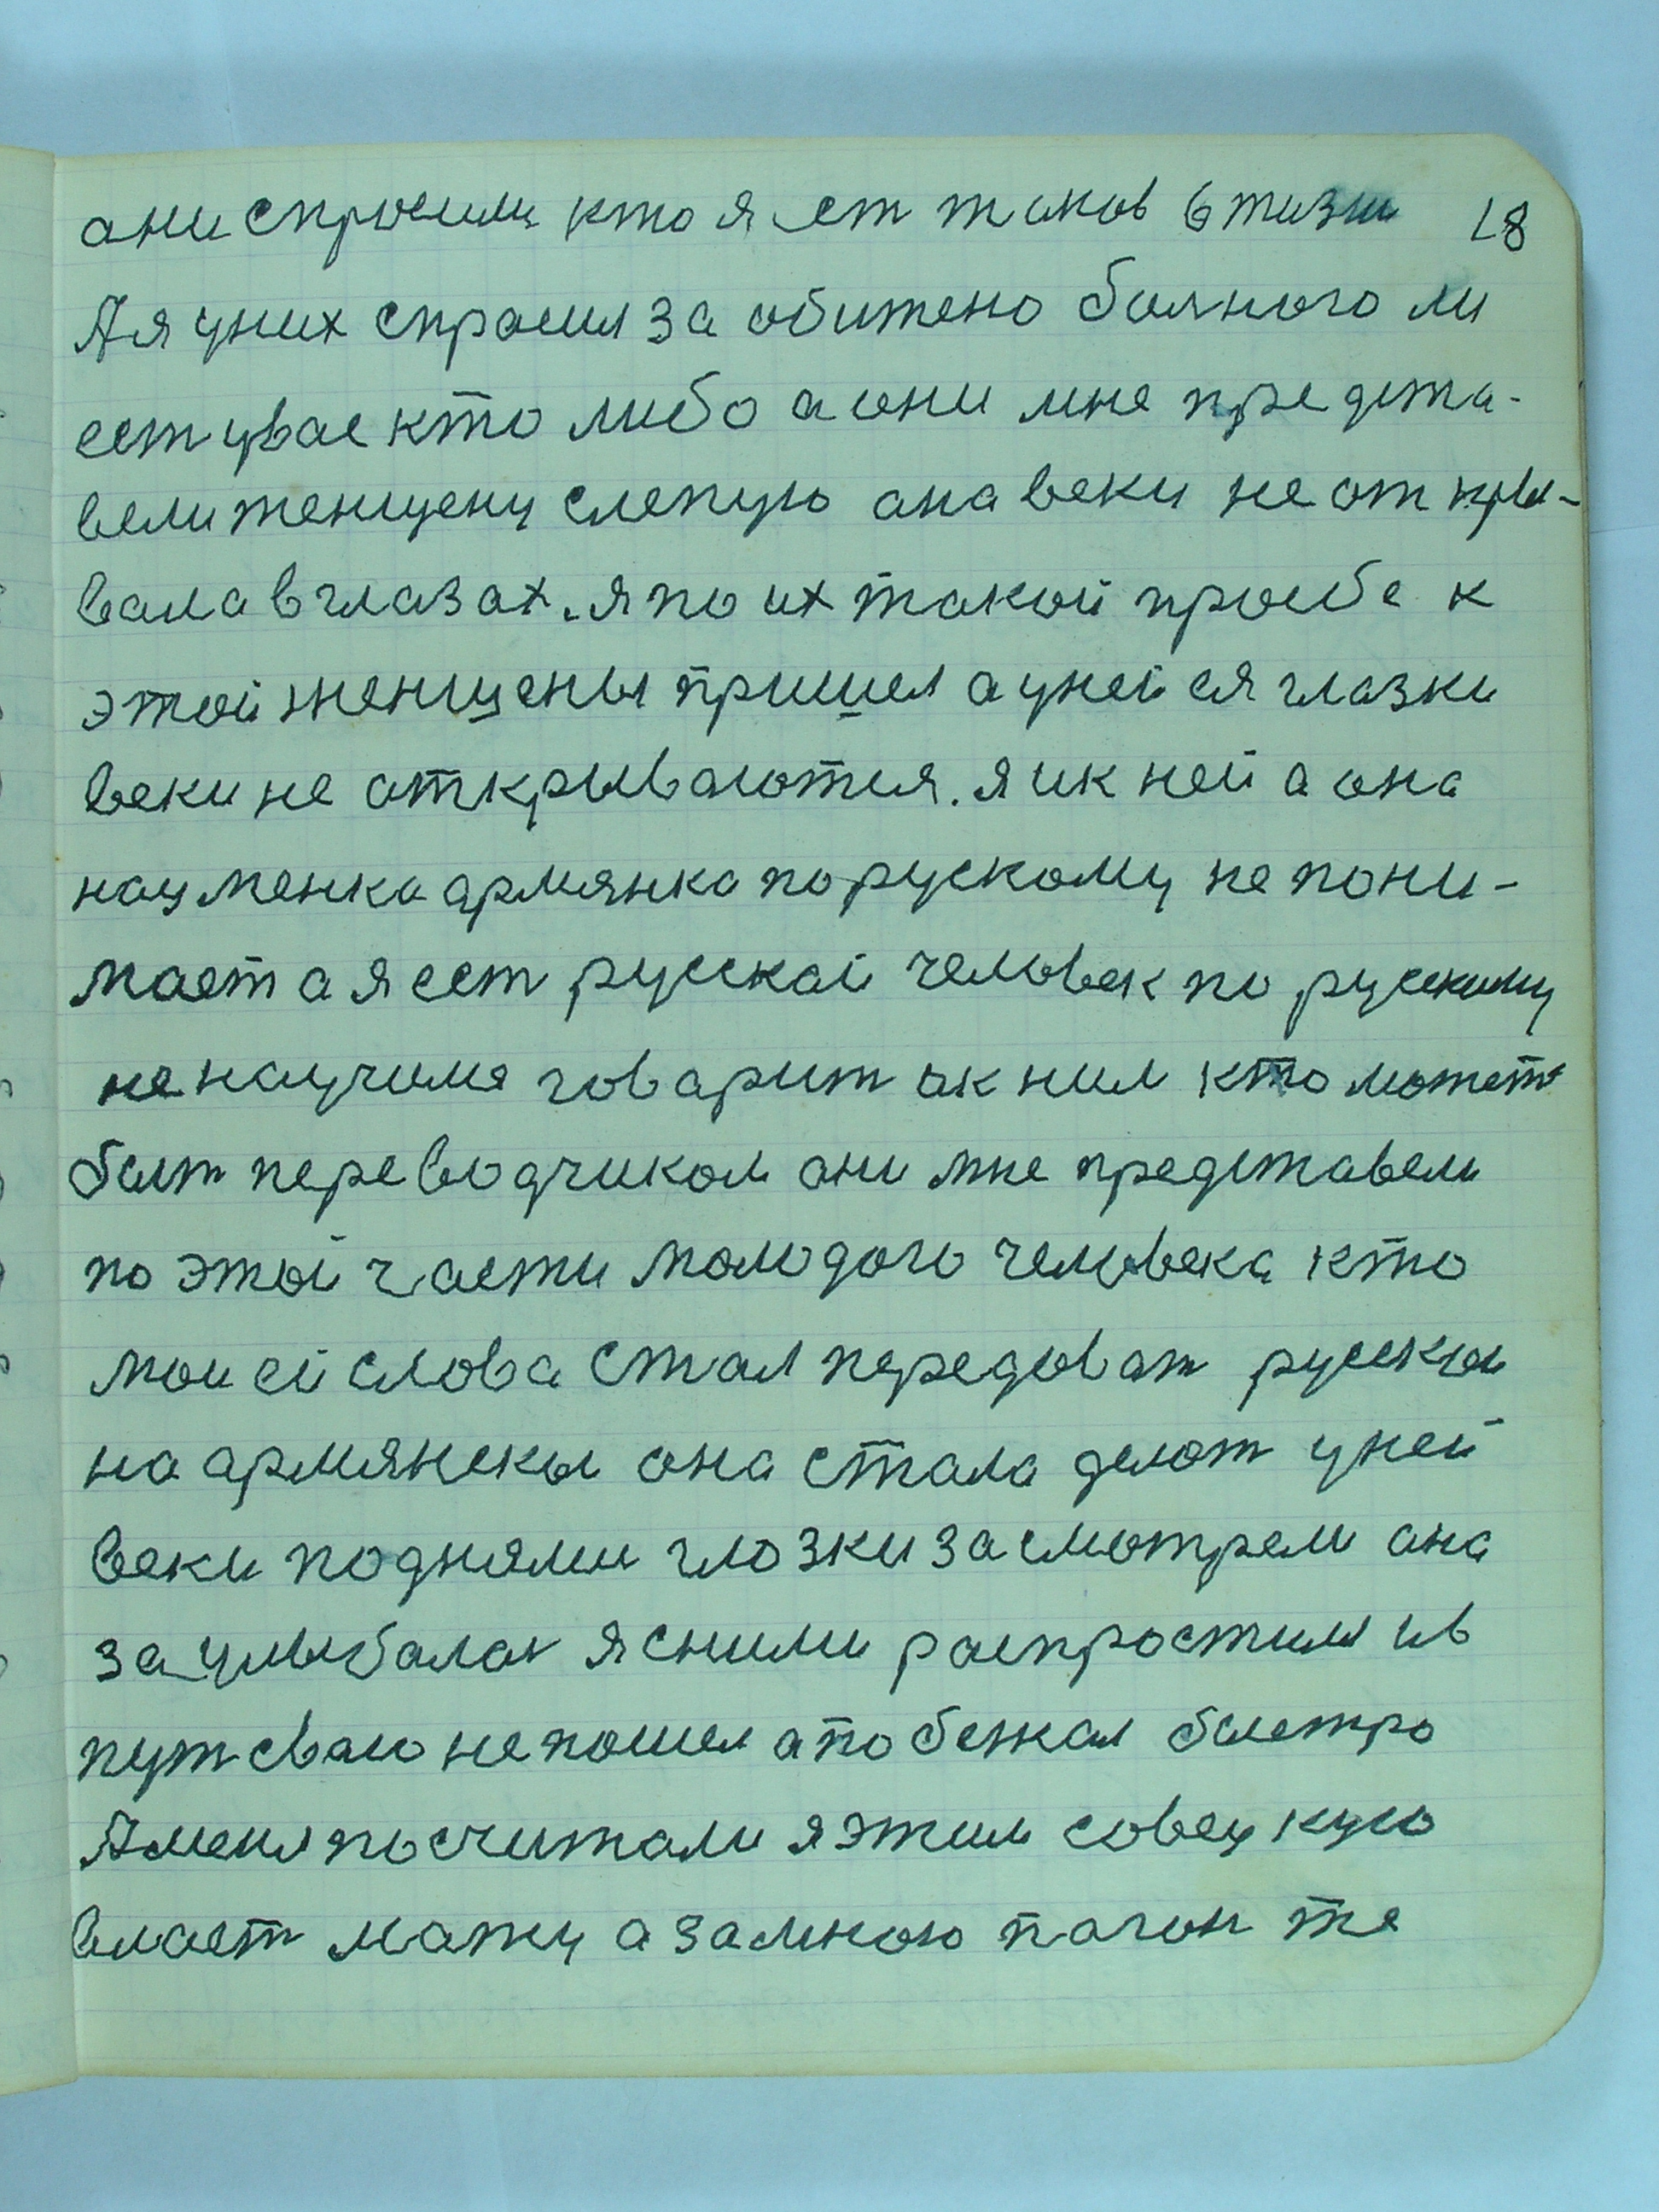 ани спросили кто я ест таков в жизни 18
А я у них спросил за обижено болного ли
ест увас кто либо а они мне предста-
вели женщену слепую ана веки не откры-
вала в глазах. я по их такой прозбе к
этой женщены пришел а у ней ся глазки
веки не открываются. я ик ней а она
нацменка армянка по рускому не пони-
мает а я сет русскай человек по русскому
не научился говарит ак ним кто может
быт переводчиком ани мне представели
по этой части молодого человека кто
мои ей слова стал передоват русскы
на армянскы она стала делат у ней
веки подняли глозки засмотрели ана
заулыбалас я сними распростился и в
пут сваю не пошел а побежал быстро
А меня посчитали я этим совецкую
власт мажу а замною пагон те